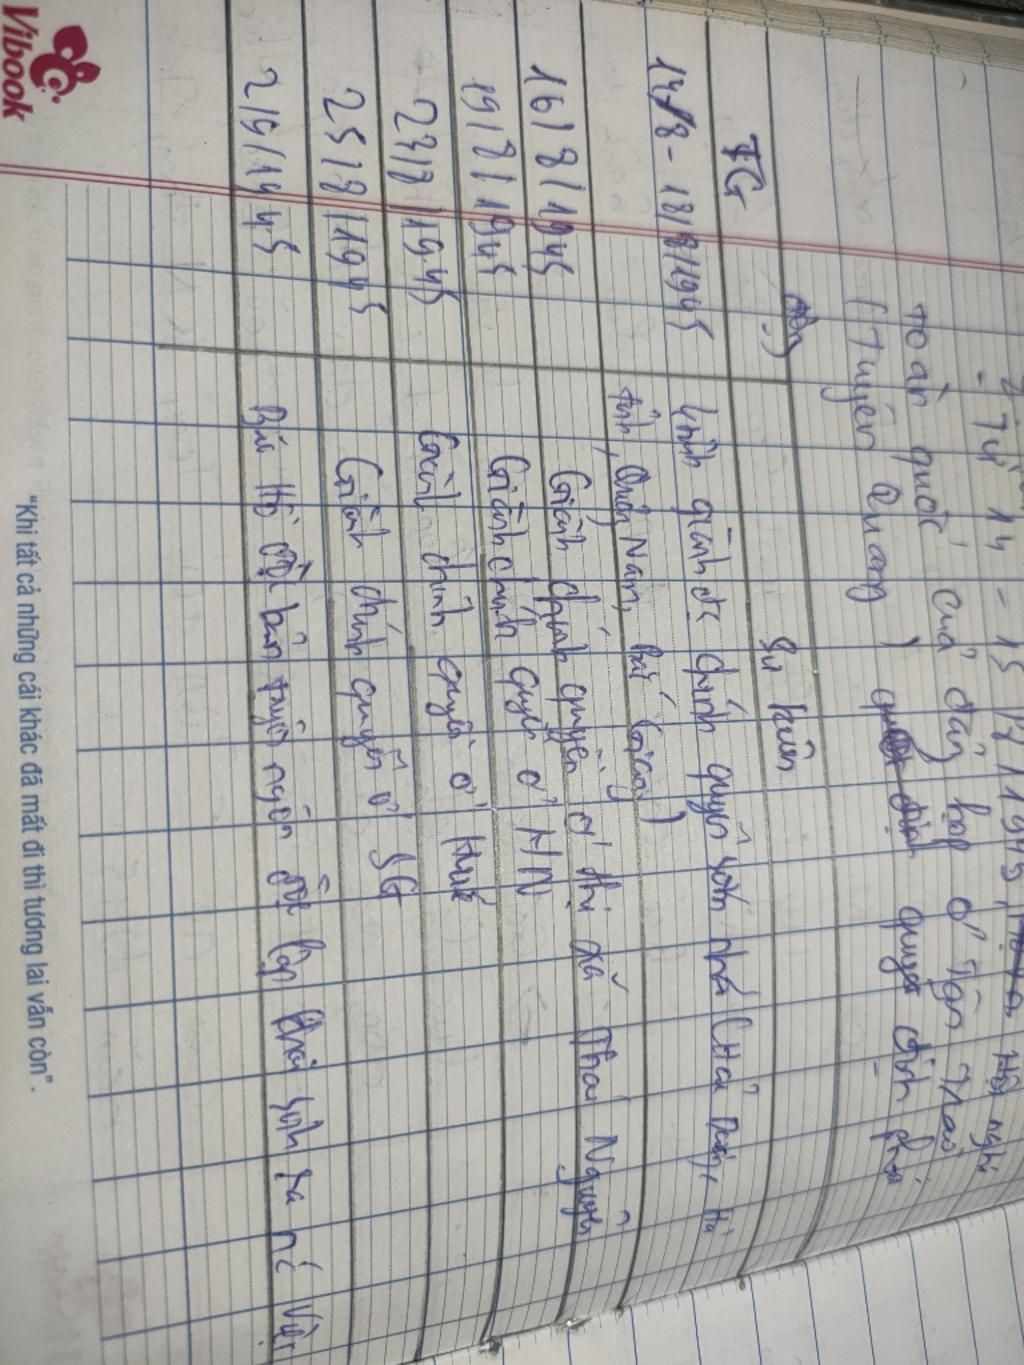 - Từ 14 - 15 /8/1945, Hội nghị
toàn quốc của đảng họp ở Tân Trào
(Tuyên Quang) quyết định phát
động
TG Sự kiện
14/8 - 18/8/1945 4 tỉnh giành đc chính quyền sớm nhất (Hải Dương, Hà
tĩnh, Quản Nam, Bắc Giang)
16/8/1945 Giành chính quyền ở thị xã Thái Nguyên
19/8/1945 Giành chính quyền ở HN
23/8/1945 Giành chính quyền ở Huế
25/8/1945 Giành chính quyền ở SG
2/9/1945 Bác Hồ đọc bản tuyên ngôn độc lập khai sinh ra nc Việt
Vibook
"Khi tất cả những cái khác đã mất đi thì tương lai vẫn còn".